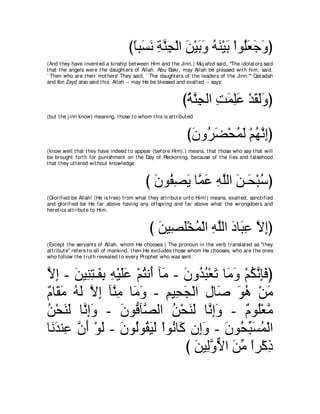 (وَجَعَلُواْ بَيْنَهُ وَبَيْنَ الْجِنَّةِ نَسَباً)
(And they have invented a kinship between Him and the Jinn.) Mujahid said, "The idolators said that the angels were the daughters of Allah. Abu Bakr, may Allah be pleased with him, said, `Then who are their mothers' They said, `The daughters of the leaders of the Jinn.'" Qatadah and Ibn Zayd also said this. Allah -- may He be blessed and exalted -- says:
(وَلَقَدْ عَلِمَتِ الْجِنَّةُ)
(but the jinn know) meaning, those to whom this is attributed
(إِنَّهُمْ لَمُحْضَرُونَ)
(know well that they have indeed to appear (before Him).) means, that those who say that will be brought forth for punishment on the Day of Reckoning, because of the lies and falsehood that they uttered without knowledge.
(سُبْحَـنَ اللَّهِ عَمَّا يَصِفُونَ )
(Glorified be Allah! (He is free) from what they attribute unto Him!) means, exalted, sanctified and glorified be He far above having any offspring and far above what the wrongdoers and heretics attribute to Him.
(إِلاَّ عِبَادَ اللَّهِ الْمُخْلَصِينَ )
(Except the servants of Allah, whom He chooses.) The pronoun in the verb translated as "they attribute" refers to all of mankind, then He excludes those whom He chooses, who are the ones who follow the truth revealed to every Prophet who was sent.
(فَإِنَّكُمْ وَمَا تَعْبُدُونَ - مَآ أَنتُمْ عَلَيْهِ بِفَـتِنِينَ - إِلاَّ
مَنْ هُوَ صَالِ الْجَحِيمِ - وَمَا مِنَّآ إِلاَّ لَهُ مَقَامٌ
مَّعْلُومٌ - وَإِنَّا لَنَحْنُ الصَّآفُّونَ - وَإِنَّا لَنَحْنُ
الْمُسَبِّحُونَ - وَإِن كَانُواْ لَيَقُولُونَ - لَوْ أَنَّ عِندَنَا
ذِكْراً مِّنَ الاٌّوَّلِينَ )